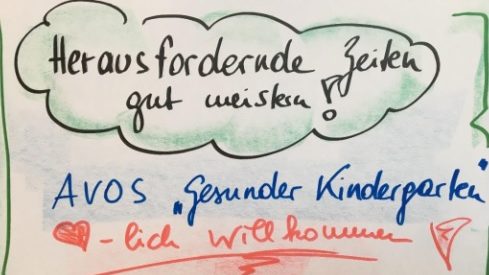 Herausfordernde Zeiten
gut meistern!
AVOS „Gesunder Kindergarten"
-lich Willkommen